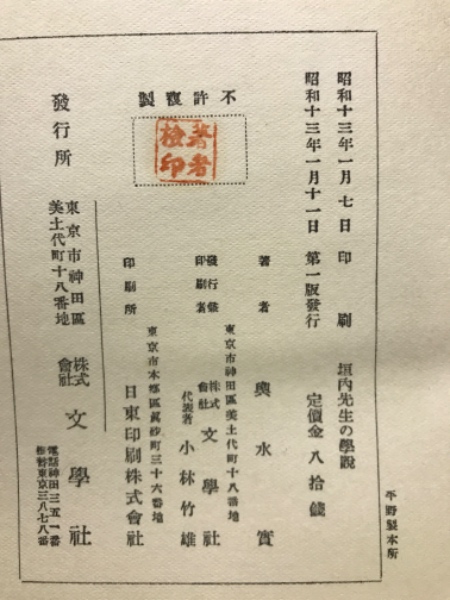 昭和十三年一月七日印刷
昭和十三年一月十一日第一版發行
垣內先生の學說
定價金八拾錢
不許複製
著者檢印
著者 輿水實
發行兼印刷者
東京市神田區美土代町十八番地
株式會社 文學社
代表者 小林竹雄
印刷所
東京市本鄕區眞砂町三十六番地
日東印刷株式會社
發行所
東京市神田區
美土代町十八番地
株式會社 文學社
電話神田三五一番
振替東京三八七八番
平野製本所